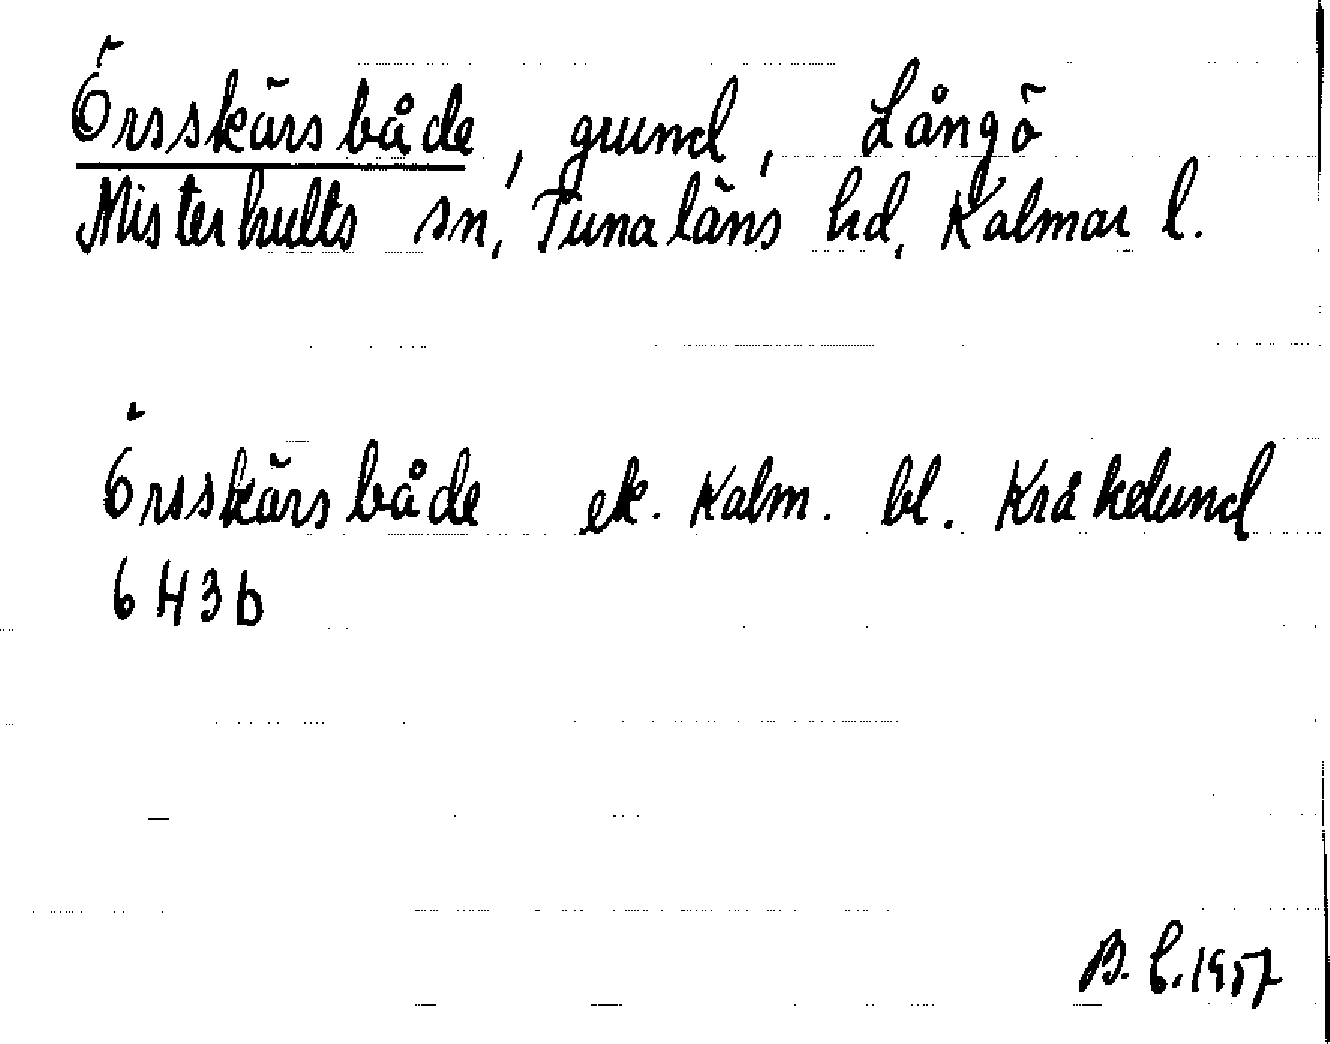 Örsskärsbåde, grund, Långö
Misterhults sn, Tunaläns hd, Kalmar l.
Örsskärsbåde ek. Kalm. bl. Kråkelund
6 H 3 b
B. C. 1957